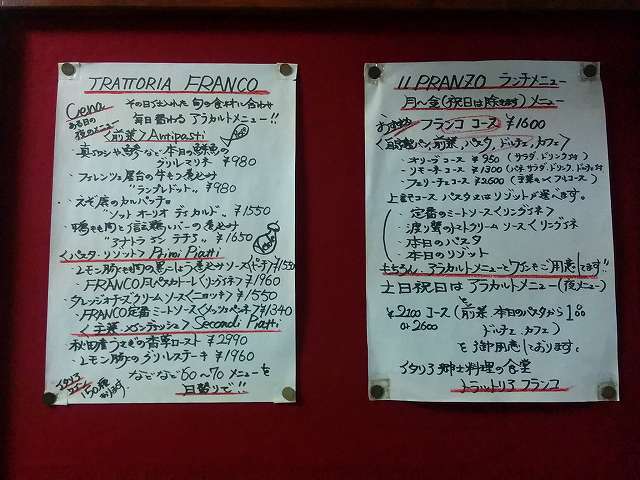 TRATTORIA FRANCO
Cena
ある日の
夜のメニュー
その日仕入れた 旬の食材に合わせ
毎日替わる アラカルトメニュー!!
〈前菜〉Antipasti
・真イワシや など 本日の鮮魚の
グリルマリネ ¥980
・フィレンツェ屋台の牛もつ煮込み
"ランプレドット" ¥980
・エゾ鹿のカルパッチョ
"ソット オーリオ ディカルド" ¥1550
・鴨もも肉と信玄鶏レバーの煮込み
¥1650
〈パスタ・リゾット〉Primi Piatti
・レモン豚もも肉の黒こしょう煮込みソース(ピーチ)¥1550
・FRANCO風ペスカトーレ(リングイネ)¥1960
・タレッジオチーズクリームソース(ニョッキ)¥1550
・FRANCO定番ミートソース ¥1340
〈主菜・メインディッシュ〉Secondi Piatti
・秋田産うさぎの香草ロースト ¥2990
・レモン豚のグリルステーキ ¥1960
などなど60〜70メニューを
日替りで!!
イタリア
ワイン
150種
あります
Il PRANZO ランチメニュー
月〜金(祝日は除きます)メニュー
おすすめ フランコ コース ¥1600
〈自家製パン、前菜、パスタ、ドルチェ、カフェ〉
・オリーブコース ¥950 (サラダ、ドリンク付)
・リモーネコース ¥1300 (パスタ、サラダ、ドリンク、ドルチェ付)
・フェリーチェコース ¥2600 (主菜もつくフルコース)
上記コース パスタ又はリゾットが選べます。
・定番のミートソース〈リングイネ〉
・渡り蟹のトマトクリームソース〈リングイネ〉
・本日のパスタ
・本日のリゾット
もちろん、アラカルトメニューとワインもご用意してます!!
土日祝日は アラカルトメニュー(夜メニュー)
と
¥2100 コース (前菜 本日のパスタから1品
or 2600
ドルチェ カフェ)
を御用意しております。
イタリア郷土料理の食堂
トラットリア フランコ